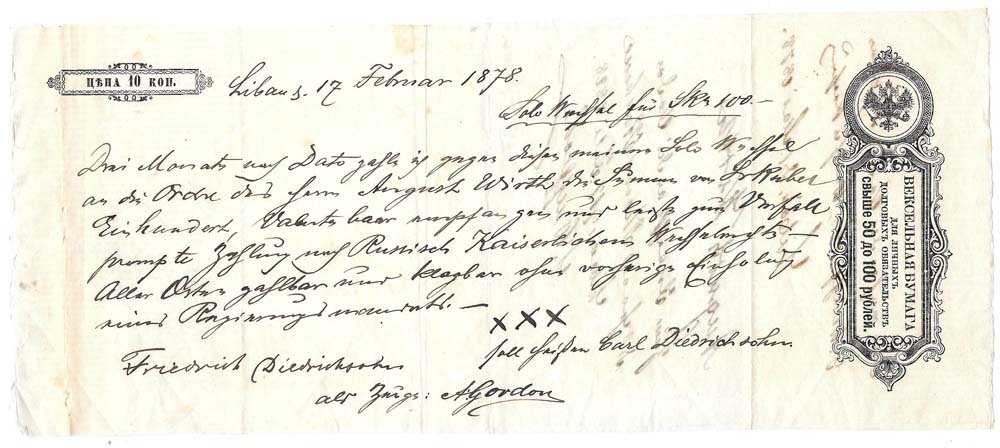 ЦѢНА 10 КОП.
Libau d. 17 Februar 1878.
Solo Wechsel für SRo 100.–
Drei Monate nach Dato zahle ich gegen diesen meinen Solo Wechsel
an die Ordre des Herrn August Wirth die Summe von SRubel
Einhundert, Valuta baar empfangen und leiste zum Verfall
prompte Zahlung nach Russisch Kaiserlichem Wechselrecht –
Aller Orten zahlbar und klagbar ohne vorherige Einholung
eines Regierungsmandats. –
XXX
soll heißen Carl Diedrichsohn
Friedrich Diedrichsohn
als Zeuge: AGordon
ВЕКСЕЛЬНАЯ БУМАГА
ДЛЯ ЛИЧНЫХЪ
ДОЛГОВЫХЪ ОБЯЗАТЕЛЬСТВЪ
СВЫШЕ 50 ДО 100 РУБЛЕЙ.